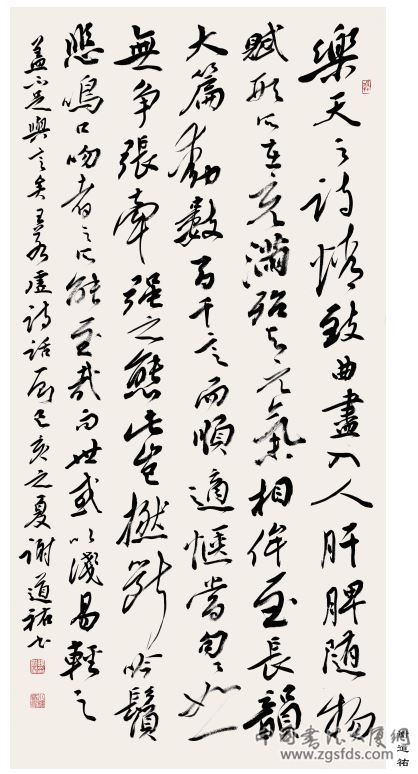 樂天之詩情致曲盡入人肝脾随物
賦形所在充滿殆与元氣相侔至長韻
大篇動數百千言而順適愜當句々如一
無争張牽强之態此豈撚斷吟鬢
悲鳴口吻者之所能至哉而世或以淺易輕之
蓋不足與言矣王若虛詩話己亥之夏謝道祐书
中国书法大厦网
www.zgsfds.com
道祐